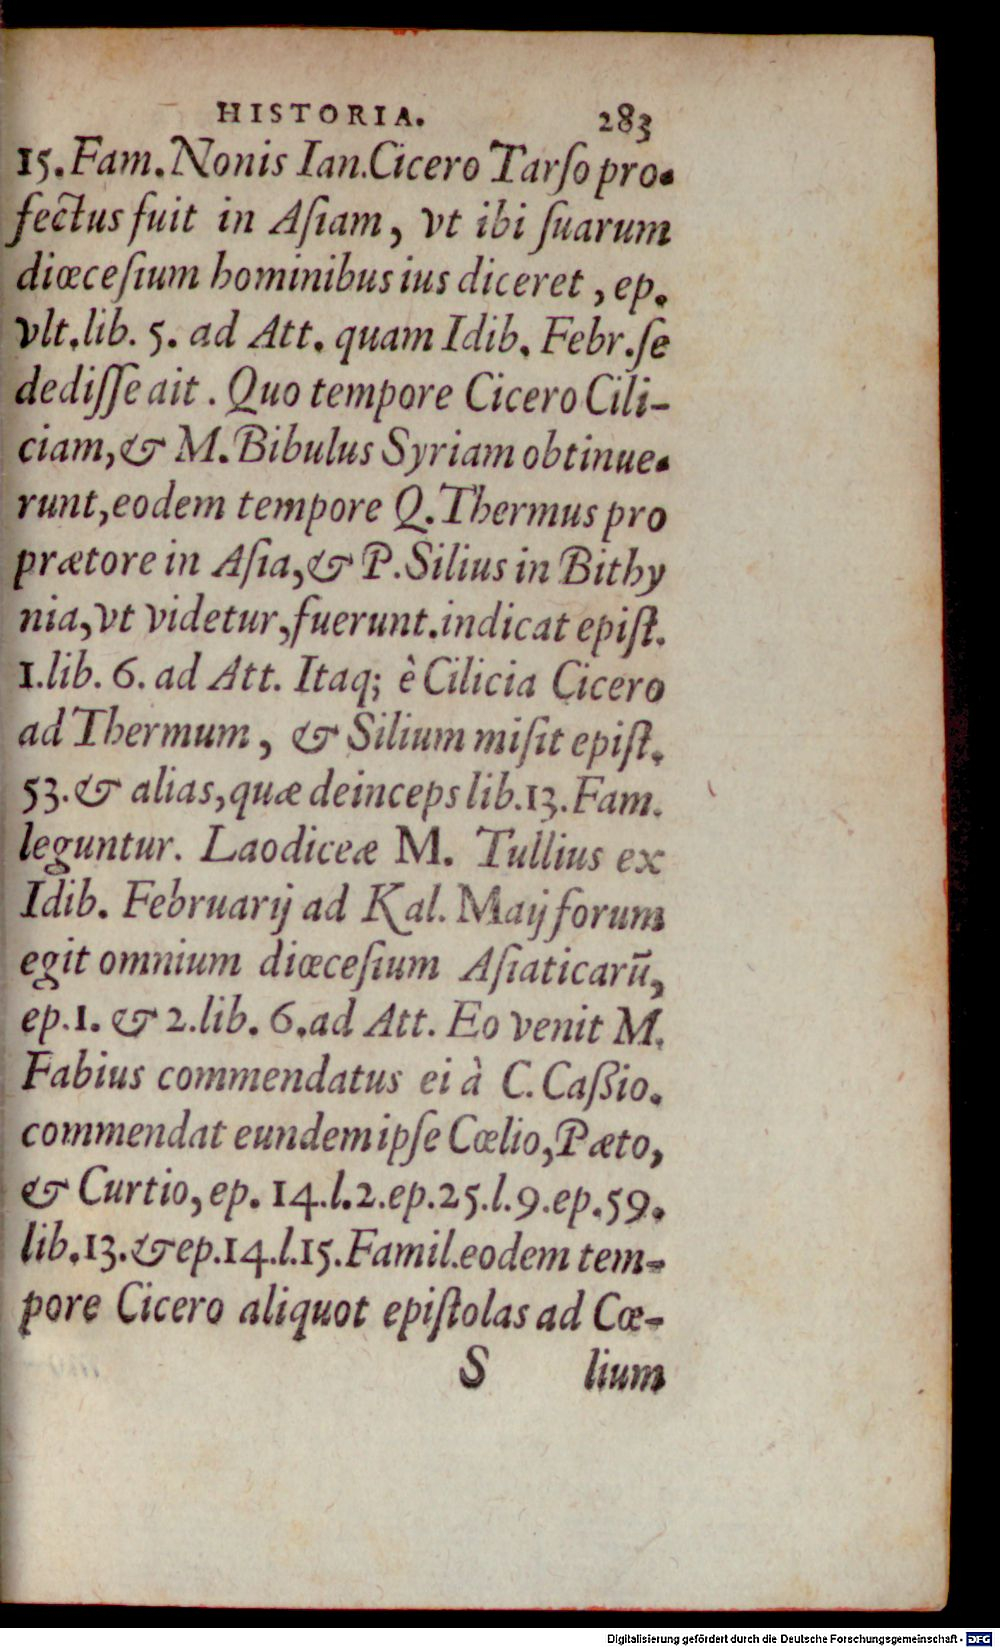 HISTORIA. 283
15. Fam. Nonis Ian. Cicero Tarſo pro-
fectus fuit in Aſiam, vt ibi ſuarum
diœceſium hominibus ius diceret, ep.
vlt. lib. 5. ad Att. quam Idib. Febr. ſe
dediſſe ait. Quo tempore Cicero Cili-
ciam, & M. Bibulus Syriam obtinue-
runt, eodem tempore Q. Thermus pro
prætore in Aſia, & P. Silius in Bithy
nia, vt videtur, fuerunt. indicat epiſt.
1. lib. 6. ad Att. Itaq; è Cilicia Cicero
ad Thermum, & Silium miſit epiſt.
53. & alias, quæ deinceps lib. 13. Fam.
leguntur. Laodiceæ M. Tullius ex
Idib. Februarij ad Kal. Maij forum
egit omnium diœceſium Aſiaticarũ,
ep. 1. & 2. lib. 6. ad Att. Eo venit M.
Fabius commendatus ei à C. Caßio.
commendat eundem ipſe Cœlio, Pæto,
& Curtio, ep. 14. l. 2. ep. 25. l. 9. ep. 59.
lib. 13. & ep. 14. l. 15. Famil. eodem tem-
pore Cicero aliquot epiſtolas ad Cœ-
S lium
Digitalisierung gefördert durch die Deutsche Forschungsgemeinschaft - DFG